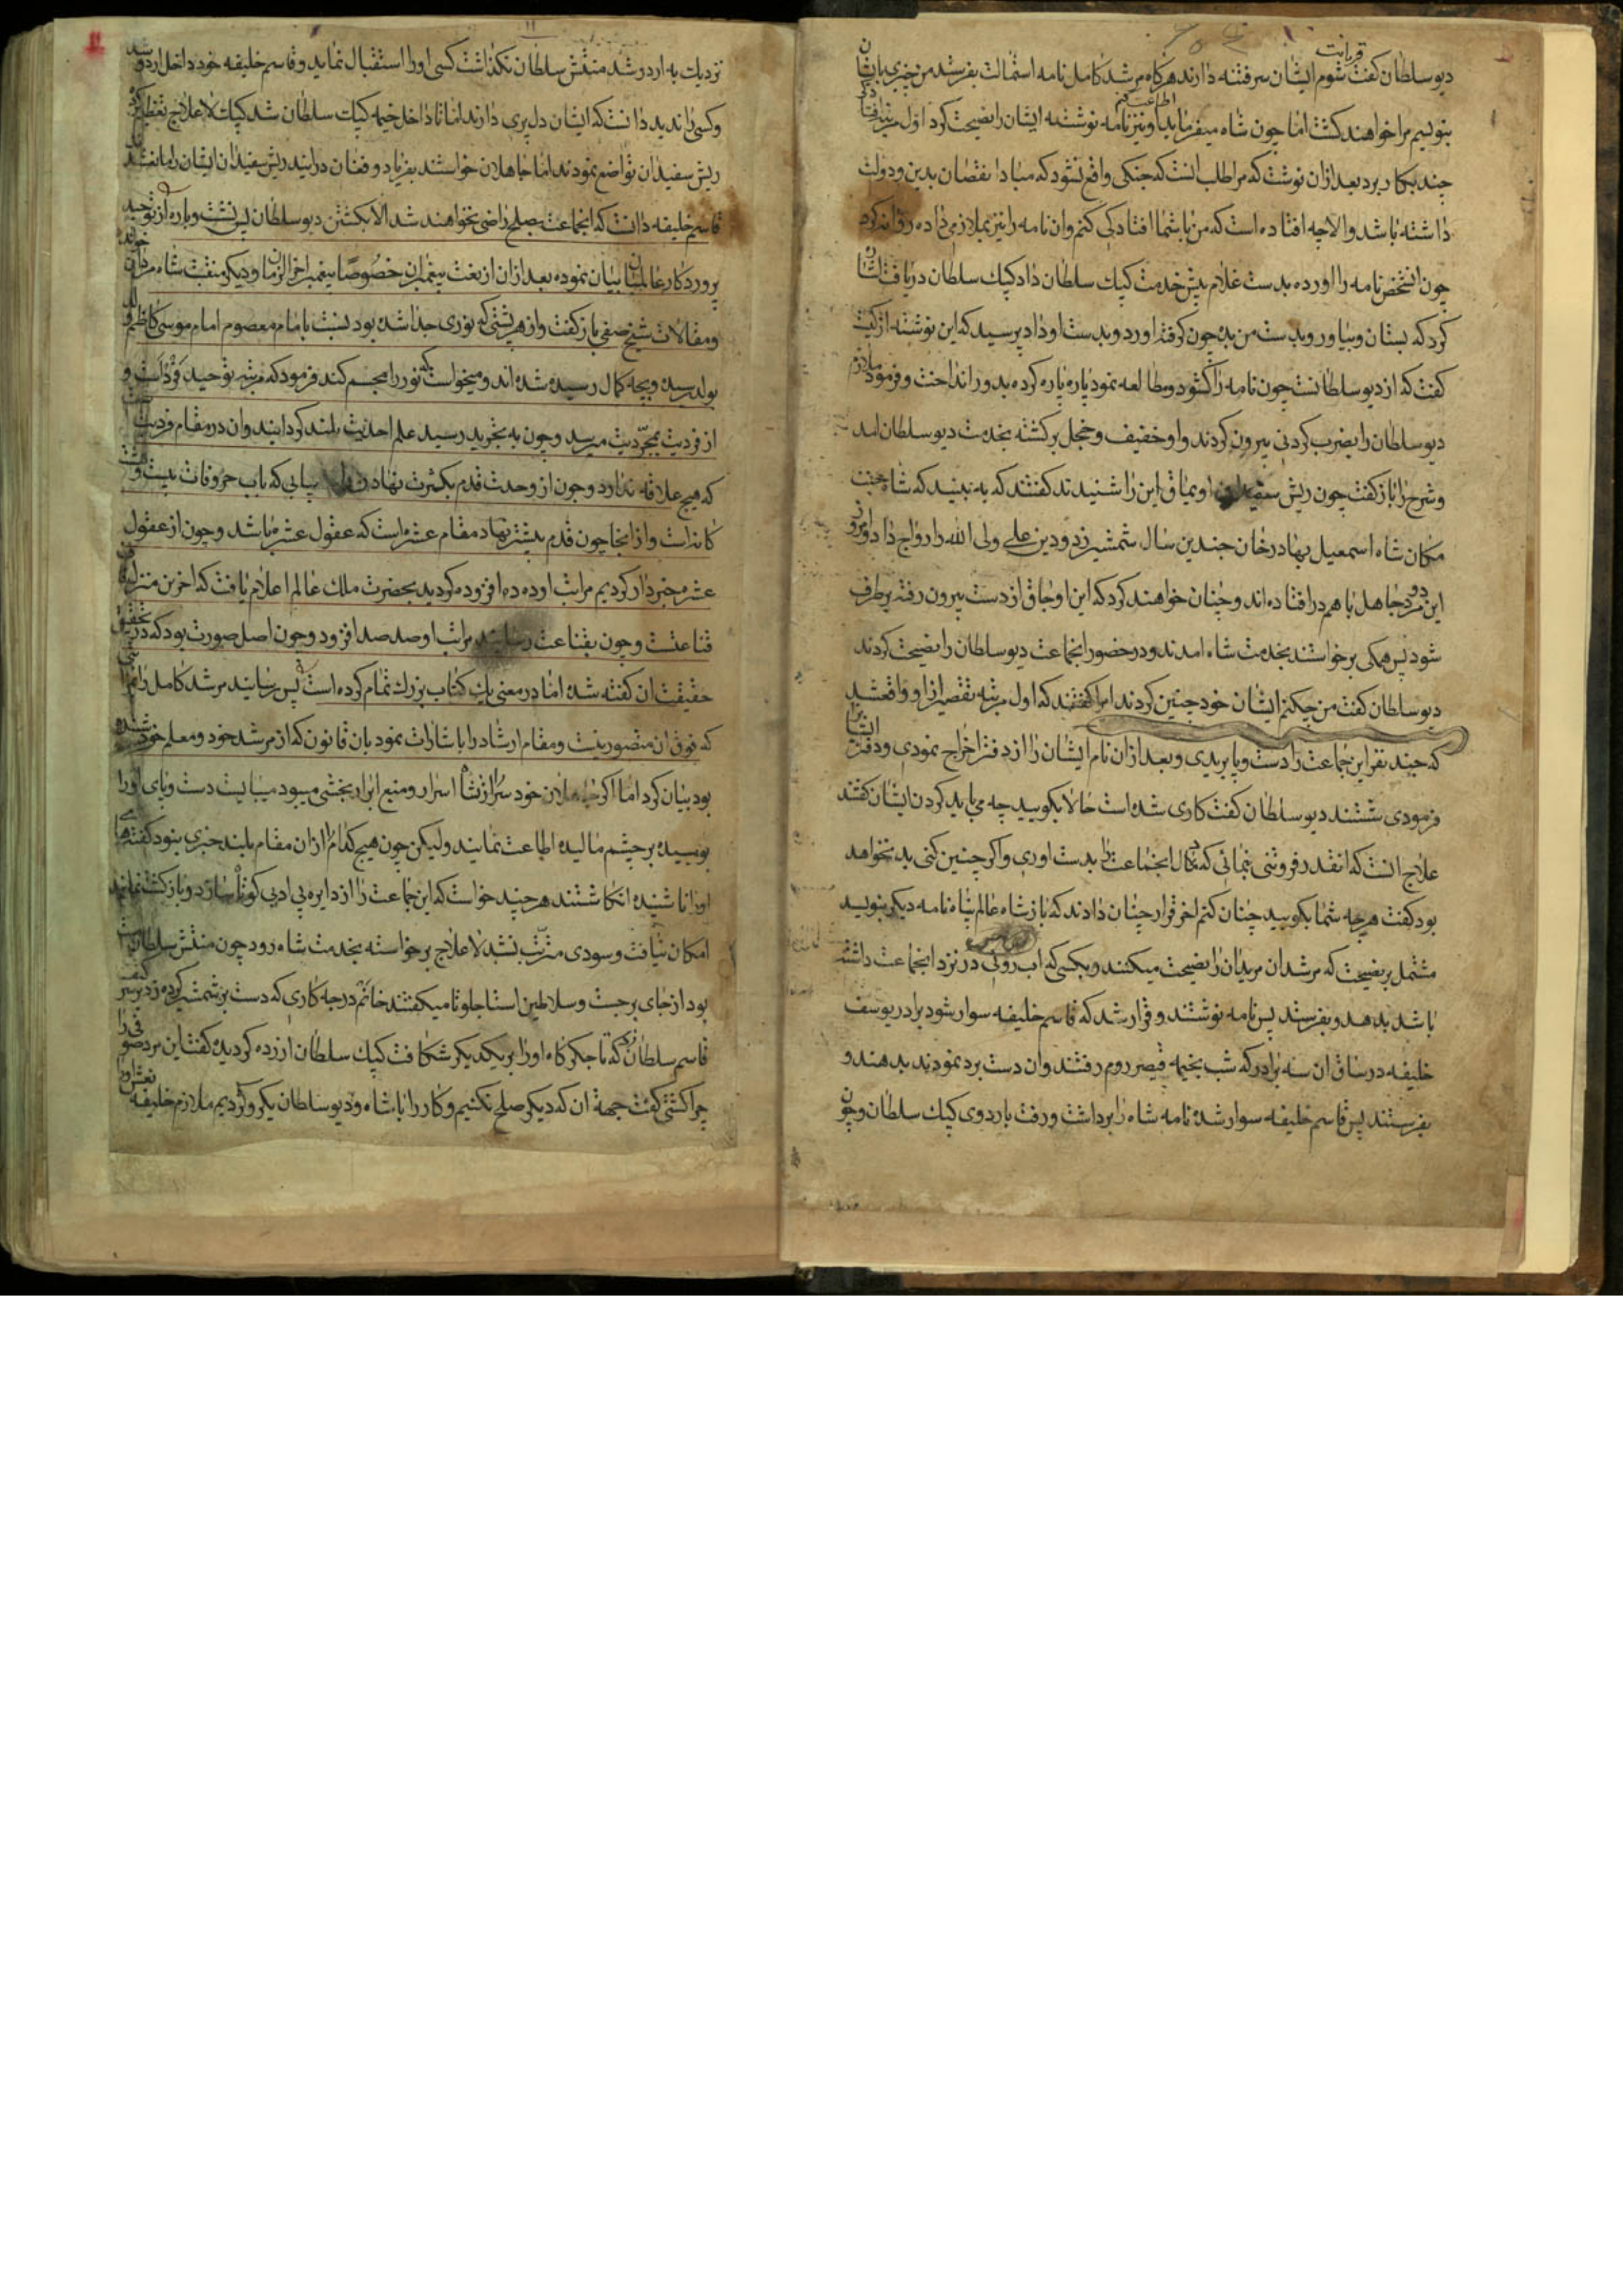 دیو سلطان کفت قربانت شوم ایشان سر فتنه دارند هرکاه مرشد کامل نامه استمالت بفرستد من چیزی بایشان
بنویسم مرا خواهند کشت اما چون شاه میفرماید اطاعت کنم و نیز نامه نوشته ایشان را نصیحت کرد اول مرتبه
چند بکار برد بعد ازان نوشت که مرا مطلب انست که جنکی واقع نشود که مبادا نقصان بدین و دولت
داشته باشد والا چه افتاده است که من با شما افتادکی کنم وان نامه را نیز بملازمی داده روانه کرد
چون انشخص نامه را اورده بدست غلام پیش خدمت کپک سلطان داد کپک سلطان دریافت اشاره
کرد که بستان و بیاور و بدست من بده چون کرفته اورد و بدست او داد پرسید که این نوشته از کیست
کفت که از دیو سلطانست چون نامه را کشود و مطالعه نمود پاره پاره کرده بدور انداخت و فرمود ملازم
دیو سلطان را بضرب کردنی بیرون کردند و او خفیف و خجل برکشته بخدمت دیو سلطان امد
و شرح را باز کفت چون ریش سفیدان اویماق این را شنیدند کفتند که به بینید که شاه جنت
مکان شاه اسمعیل بهادر خان چندین سال شمشیر زد و دین علی ولی الله را رواج داد و امروز
این دو مرد جاهل باهم در افتاده اند و چنان خواهند کرد که این اوجاق از دست بیرون رفته برطرف
شود پس همکی برخواستند بخدمت شاه امدند و در حضور انجماعت دیو سلطان را نصیحت کردند
دیو سلطان کفت من چکنم ایشان خود چنین کردند امرا کفتند که اول مرتبه تقصیر از او واقع شد
که چند نفر این جماعت را دست و پا بریدی و بعد ازان نام ایشان را از دفتر اخراج نمودی و دفتر ایشانرا
فرمودی شستند دیو سلطان کفت کاری شده است حالا بکویید چه می باید کردن ایشان کفتند
علاج انست که انقدر فروتنی بنمائی که دل انجماعت را بدست اوری واکر چنین کنی بد نخواهد
بود کفت هرچه شما بکویید چنان کنم اخر قرار چنان دادند که باز شاه عالم پناه نامه دیکر بنویسد
مشتمل بر نصیحت که مرشدان مریدان را نصیحت میکنند و بکسی که اب روئی در نزد انجماعت داشته
باشد بدهد و بفرستد پس نامه نوشتند و قرار شد که قاسم خلیفه سوار شود برادر یوسف
خلیفه درساق ان سه برادر که شب بخیمه قیصر روم رفتند وان دست برد نمودند بدهند و
بفرستند پس قاسم خلیفه سوار شده نامه شاه را برداشت و رفت باردوی کپک سلطان و چون
نزدیک به اردو شد منتش سلطان نکذاشت کسی او را استقبال نماید و قاسم خلیفه خود داخل اردو شد
و کسی را ندید دانست که ایشان دل پری دارند اما تا داخل خیمه کپک سلطان شد کپک لاعلاج تعظیم کرد
ریش سفیدان تواضع نمودند اما جاهلان خواستند بفریاد و فغان درایند ریش سفیدان ایشان را مانع شدند
قاسم خلیفه دانست که انجماعت بصلح راضی نخواهند شد الا بکشتن دیو سلطان پس نشست و پاره از توحید
پروردکار عالمیان بیان نموده بعد ازان از نعت پیغمبران خصوصا پیغمبر اخر الزمان و دیکر منقبت شاه مردان خواند
و مقالات شیخ صفی باز کفت واز هر پشتی که نوری جدا شده بود بنسبت بامام معصوم امام موسی کاظم
بولد رسیده و بچه کمال رسیده شده اند و میخواست که نور را مجسم کند فرمود که مرتبه توحید فرد است و
از فردیت بمجردیت میرسد و چون به تجرید رسید علم احدیت بلند کردانید وان در مقام فردیت
که هیچ علاقه ندارد و چون از وحدت قدم بکثرت نهاد بیانی که باب حروفات بیست و هشت
کانه است واز انجا چون قدم بیشتر نهاد مقام عشره است که عقول عشره باشد و چون از عقول
عشره خبردار کردیم مراتب او ده ده افزوده کردید بحضرت ملک عالم اعلام یافت که اخرین منزل
قناعتست و چون بقناعت رسانید مراتب او صد صد افزود و چون اصل صورت بود که در تحقیق
حقیقت ان کفته شده اما در معنی یک کتاب بزرک تمام کرده است پس رسانید مرشد کامل را
که فوق ان متصور نیست و مقام ارشاد را باشارات نمود بان قانون که از مرشد خود و معلم خود شنیده
بود بیان کرد اما اکر جاهلان خود سر از نشاء اسرار و منبع ابرار بخشی میبود میبایست دست و پای او را
بوسیده بر چشم مالیده اطاعت نمایند ولیکن چون هیچ کدام را ازان مقام بلند خبری نبود کفته های
او را ناشنیده انکاشتند هرچند خواست که این جماعت را از دایره بی ادبی کوتاه سازد و باز کشت نمایند
امکان نیافت و سودی مترتب نشد لاعلاج برخواسته بخدمت شاه رود چون منتش سلطان مست
بود از جای برجست و سلاطین استاجلو تا میکفتند خانم در چه کاری که دست بر شمشیر کرده زد بر سر کتف
قاسم سلطان که تا جکر کاه او را بر یکدیکر شکافت کپک سلطان ازرده کردیده کفت این مرد صوفی را
چرا کشتی کفت جهة ان که دیکر صلح نکنیم و کار را با شاه و دیو سلطان یکرو کردیم ملازم خلیفه نعش او را